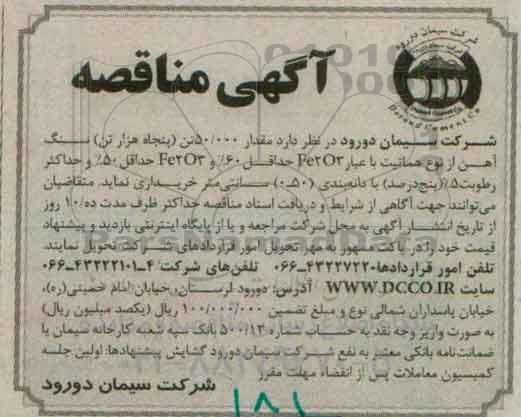 شرکت سیمان دورود
Dorood Cement Co
آگهی مناقصه
شرکت سیمان دورود در نظر دارد مقدار ۵۰/۰۰۰تن (پنجاه هزار تن) سنگ
آهن از نوع هماتیت با عیار Fe۲O۳ حداقل ۶۰٪ و Fe۲O۳ حداقل ۵۰٪ و حداکثر
رطوبت۵٪(پنج‌درصد) با دانه‌بندی (۵۰ـ۰) سانتی‌متر خریداری نماید. متقاضیان
می‌توانند جهت آگاهی از شرایط و دریافت اسناد مناقصه حداکثر ظرف مدت ده/۱۰ روز
از تاریخ انتشار آگهی به محل شرکت مراجعه و یا از پایگاه اینترنتی بازدید و پیشنهاد
قیمت خود را در پاکت ممهور به مهر تحویل امور قراردادهای شرکت تحویل نمایند.
تلفن امور قراردادها ۴۳۲۲۷۲۲۰ـ۰۶۶ تلفن‌های شرکت ۴ـ۴۳۲۲۲۱۰۱ـ۰۶۶
سایت WWW.DCCO.IR آدرس: دورود لرستان، خیابان امام خمینی(ره)،
خیابان پاسداران شمالی نوع و مبلغ تضمین ۱۰۰/۰۰۰/۰۰۰ ریال (یکصد میلیون ریال)
به صورت واریز وجه نقد به حساب شماره ۵۰۰/۱۳ بانک سپه شعبه کارخانه سیمان یا
ضمانت‌نامه بانکی معتبر به نفع شرکت سیمان دورود گشایش پیشنهادها: اولین جلسه
کمیسیون معاملات پس از انقضاء مهلت مقرر
شرکت سیمان دورود
۱۸۱